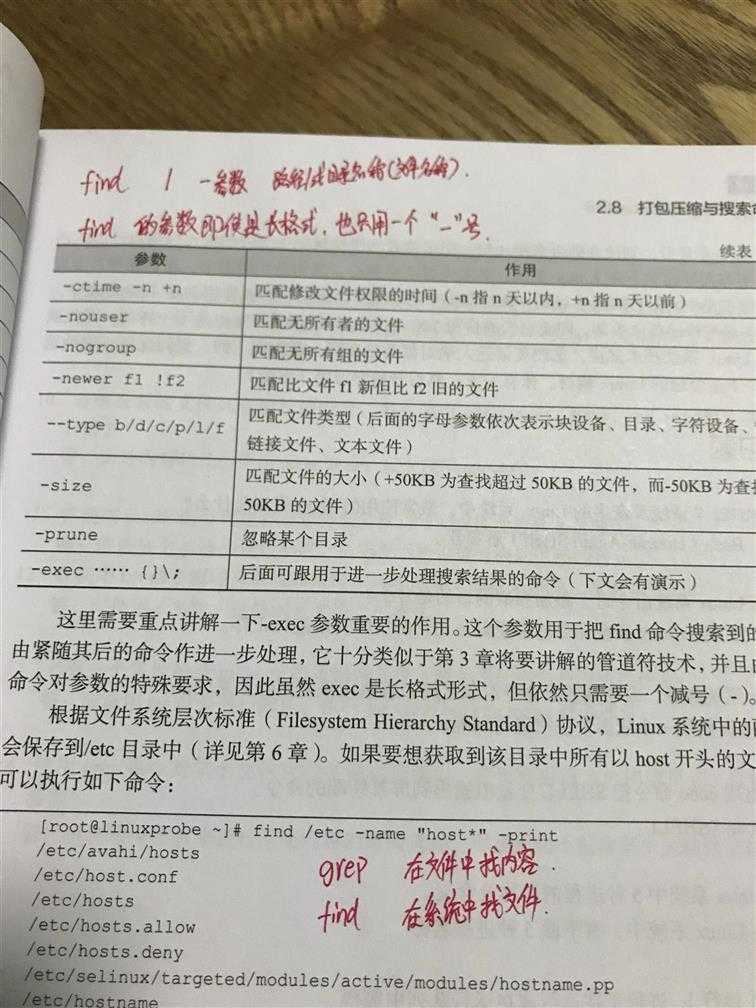 find / -参数 路径/或目录名称(文件名称).
find 的参数即使是长格式,也只用一个"-"号.
2.8 打包压缩与搜索
续表
参数 作用
-ctime -n +n 匹配修改文件权限的时间(-n 指 n 天以内,+n 指 n 天以前)
-nouser 匹配无所有者的文件
-nogroup 匹配无所有组的文件
-newer f1 !f2 匹配比文件 f1 新但比 f2 旧的文件
--type b/d/c/p/l/f 匹配文件类型(后面的字母参数依次表示块设备、目录、字符设备、
链接文件、文本文件)
-size 匹配文件的大小(+50KB 为查找超过 50KB 的文件,而-50KB 为查
50KB 的文件)
-prune 忽略某个目录
-exec …… {}\; 后面可跟用于进一步处理搜索结果的命令(下文会有演示)
这里需要重点讲解一下-exec 参数重要的作用。这个参数用于把 find 命令搜索到的
由紧随其后的命令作进一步处理,它十分类似于第 3 章将要讲解的管道符技术,并且
命令对参数的特殊要求,因此虽然 exec 是长格式形式,但依然只需要一个减号(-)。
根据文件系统层次标准(Filesystem Hierarchy Standard)协议,Linux 系统中的
会保存到/etc 目录中(详见第 6 章)。如果要想获取到该目录中所有以 host 开头的文
可以执行如下命令:
[root@linuxprobe ~]# find /etc -name "host*" -print
/etc/avahi/hosts
/etc/host.conf
/etc/hosts
/etc/hosts.allow
/etc/hosts.deny
/etc/selinux/targeted/modules/active/modules/hostname.pp
/etc/hostname
grep 在文件中找内容.
find 在系统中找文件.